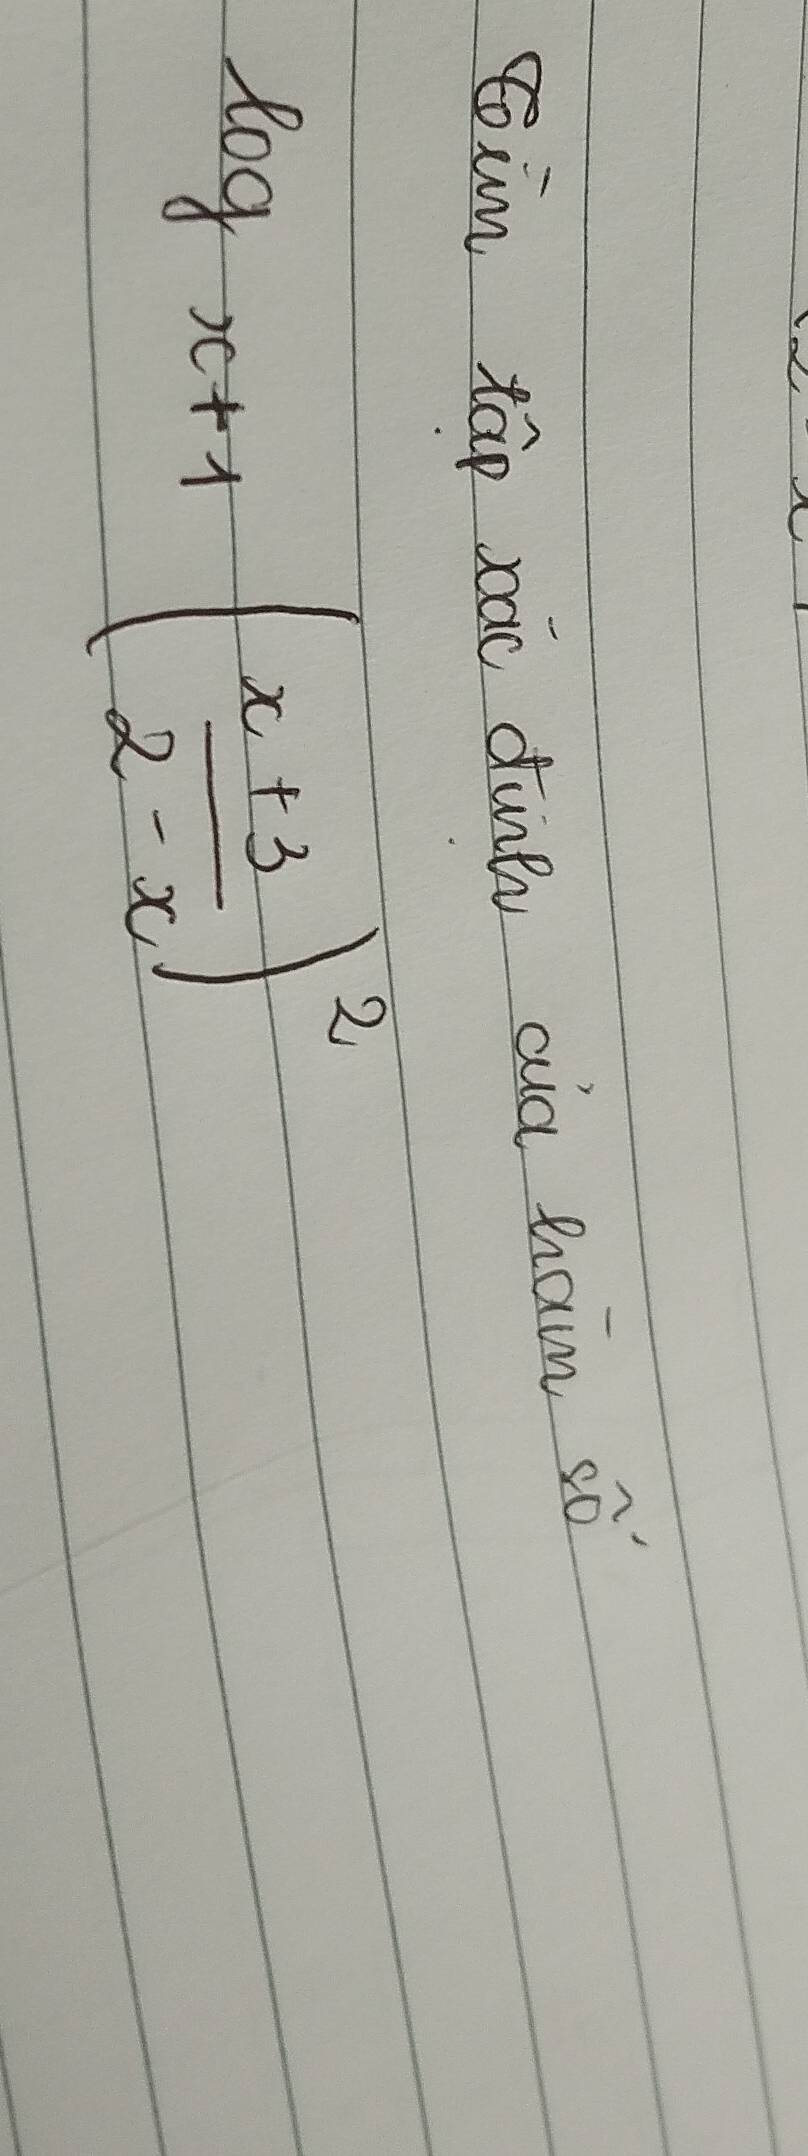 Tìm tập xác định của hàm số
log x+1 (x+3 / 2-x)²